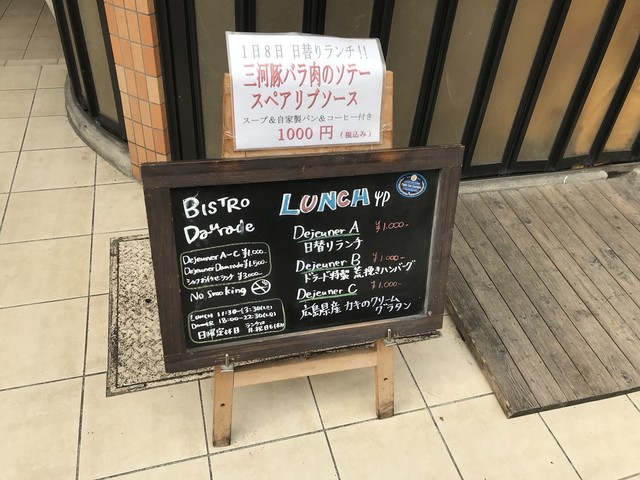 1日8日 日替りランチ!!
三河豚バラ肉のソテー
スペアリブソース
スープ&自家製パン&コーヒー付き
1000円(税込み)
BISTRO
Daurade
Dejeuner A-C ¥1,000
Dejeuner Daurade ¥1,500
シェフおまかせランチ ¥3,000
No Smoking
LUNCH 11:30-13:30(L.O)
18:00-22:30(L.O)
日曜定休日
LUNCH
Dejeuner A ¥1,000-
日替りランチ
Dejeuner B ¥1,000-
ドラード特製 荒挽きハンバーグ
Dejeuner C ¥1,000-
広島県産 カキのクリーム
グラタン